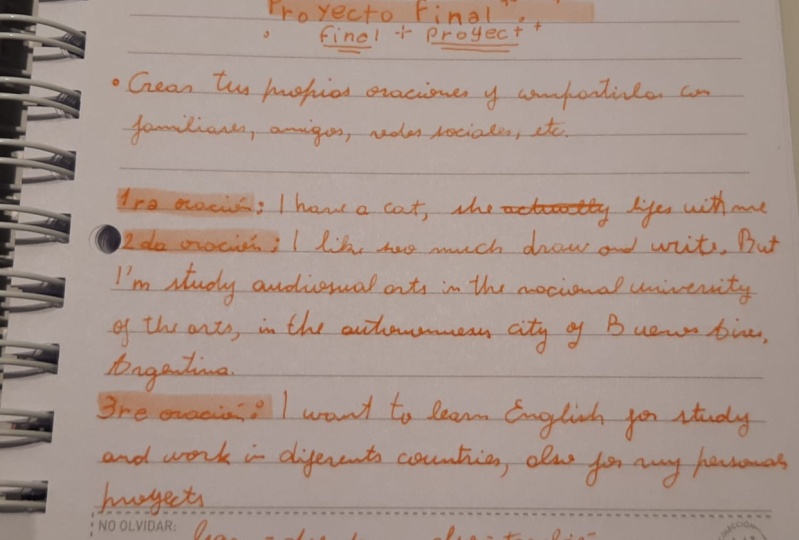 Proyecto Final
final + proyect
• Crear tus propias oraciones y compartirlas con
familiares, amigos, redes sociales, etc.
1ra oración: I have a cat, she actually lifes with me
2da oración: I like soo much draw and write. But
I'm study audiovisual arts in the nacional university
of the arts, in the city of Buenos Aires,
Argentina.
3re oración: I want to learn English for study
and work in diferents countries, also for my personals
proyects
NO OLVIDAR: